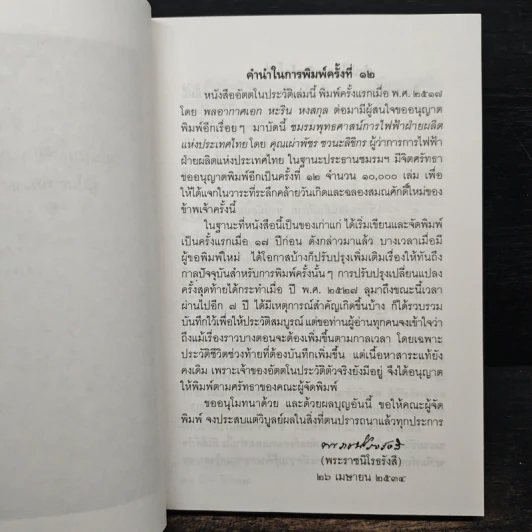 คำนำในการพิมพ์ครั้งที่ ๑๒
หนังสืออัตตโนประวัติเล่มนี้ พิมพ์ครั้งแรกเมื่อ พ.ศ. ๒๕๑๗
โดย พลอากาศเอก หะริน หงสกุล ต่อมามีผู้สนใจขออนุญาต
พิมพ์อีกเรื่อยๆ มาบัดนี้ ชมรมพุทธศาสน์การไฟฟ้าฝ่ายผลิต
แห่งประเทศไทยโดย คุณเผ่าพัชร ชวนะลิขิกร ผู้ว่าการการไฟฟ้า
ฝ่ายผลิตแห่งประเทศไทย ในฐานะประธานชมรมฯ มีจิตศรัทธา
ขออนุญาตพิมพ์อีกเป็นครั้งที่ ๑๒ จำนวน ๑๐,๐๐๐ เล่ม เพื่อ
ให้ได้แจกในวาระที่ระลึกคล้ายวันเกิดและฉลองสมณศักดิ์ใหม่ของ
ข้าพเจ้าครั้งนี้
ในฐานะที่หนังสือนี้เป็นของเก่าแก่ ได้เริ่มเขียนและจัดพิมพ์
เป็นครั้งแรกเมื่อ ๑๗ ปีก่อน ดังกล่าวมาแล้ว บางเวลาเมื่อมี
ผู้ขอพิมพ์ใหม่ ได้โอกาสบ้างก็ปรับปรุงเพิ่มเติมเรื่องให้ทันถึง
กาลปัจจุบันสำหรับการพิมพ์ครั้งนั้นๆ การปรับปรุงเปลี่ยนแปลง
ครั้งสุดท้ายได้กระทำเมื่อ ปี พ.ศ. ๒๕๒๗ ลุมาถึงขณะนี้เวลา
ผ่านไปอีก ๗ ปี ได้มีเหตุการณ์สำคัญเกิดขึ้นบ้าง ก็ได้รวบรวม
บันทึกไว้เพื่อให้ประวัติสมบูรณ์ แต่ขอท่านผู้อ่านทุกคนจงเข้าใจว่า
ถึงแม้เรื่องราวบางตอนจะต้องเพิ่มขึ้นตามกาลเวลา โดยเฉพาะ
ประวัติชีวิตช่วงท้ายที่ต้องบันทึกเพิ่มขึ้น แต่เนื้อหาสาระแท้ยัง
คงเดิม เพราะเจ้าของอัตตโนประวัติตัวจริงยังมีอยู่ จึงได้อนุญาต
ให้พิมพ์ตามศรัทธาของคณะผู้จัดพิมพ์
ขออนุโมทนาด้วย และด้วยผลบุญอันนี้ ขอให้คณะผู้จัด
พิมพ์ จงประสบแต่วิบูลย์ผลในสิ่งที่ตนปรารถนาแล้วทุกประการ
(พระราชนิโรธรังสี)
๒๖ เมษายน ๒๕๓๔